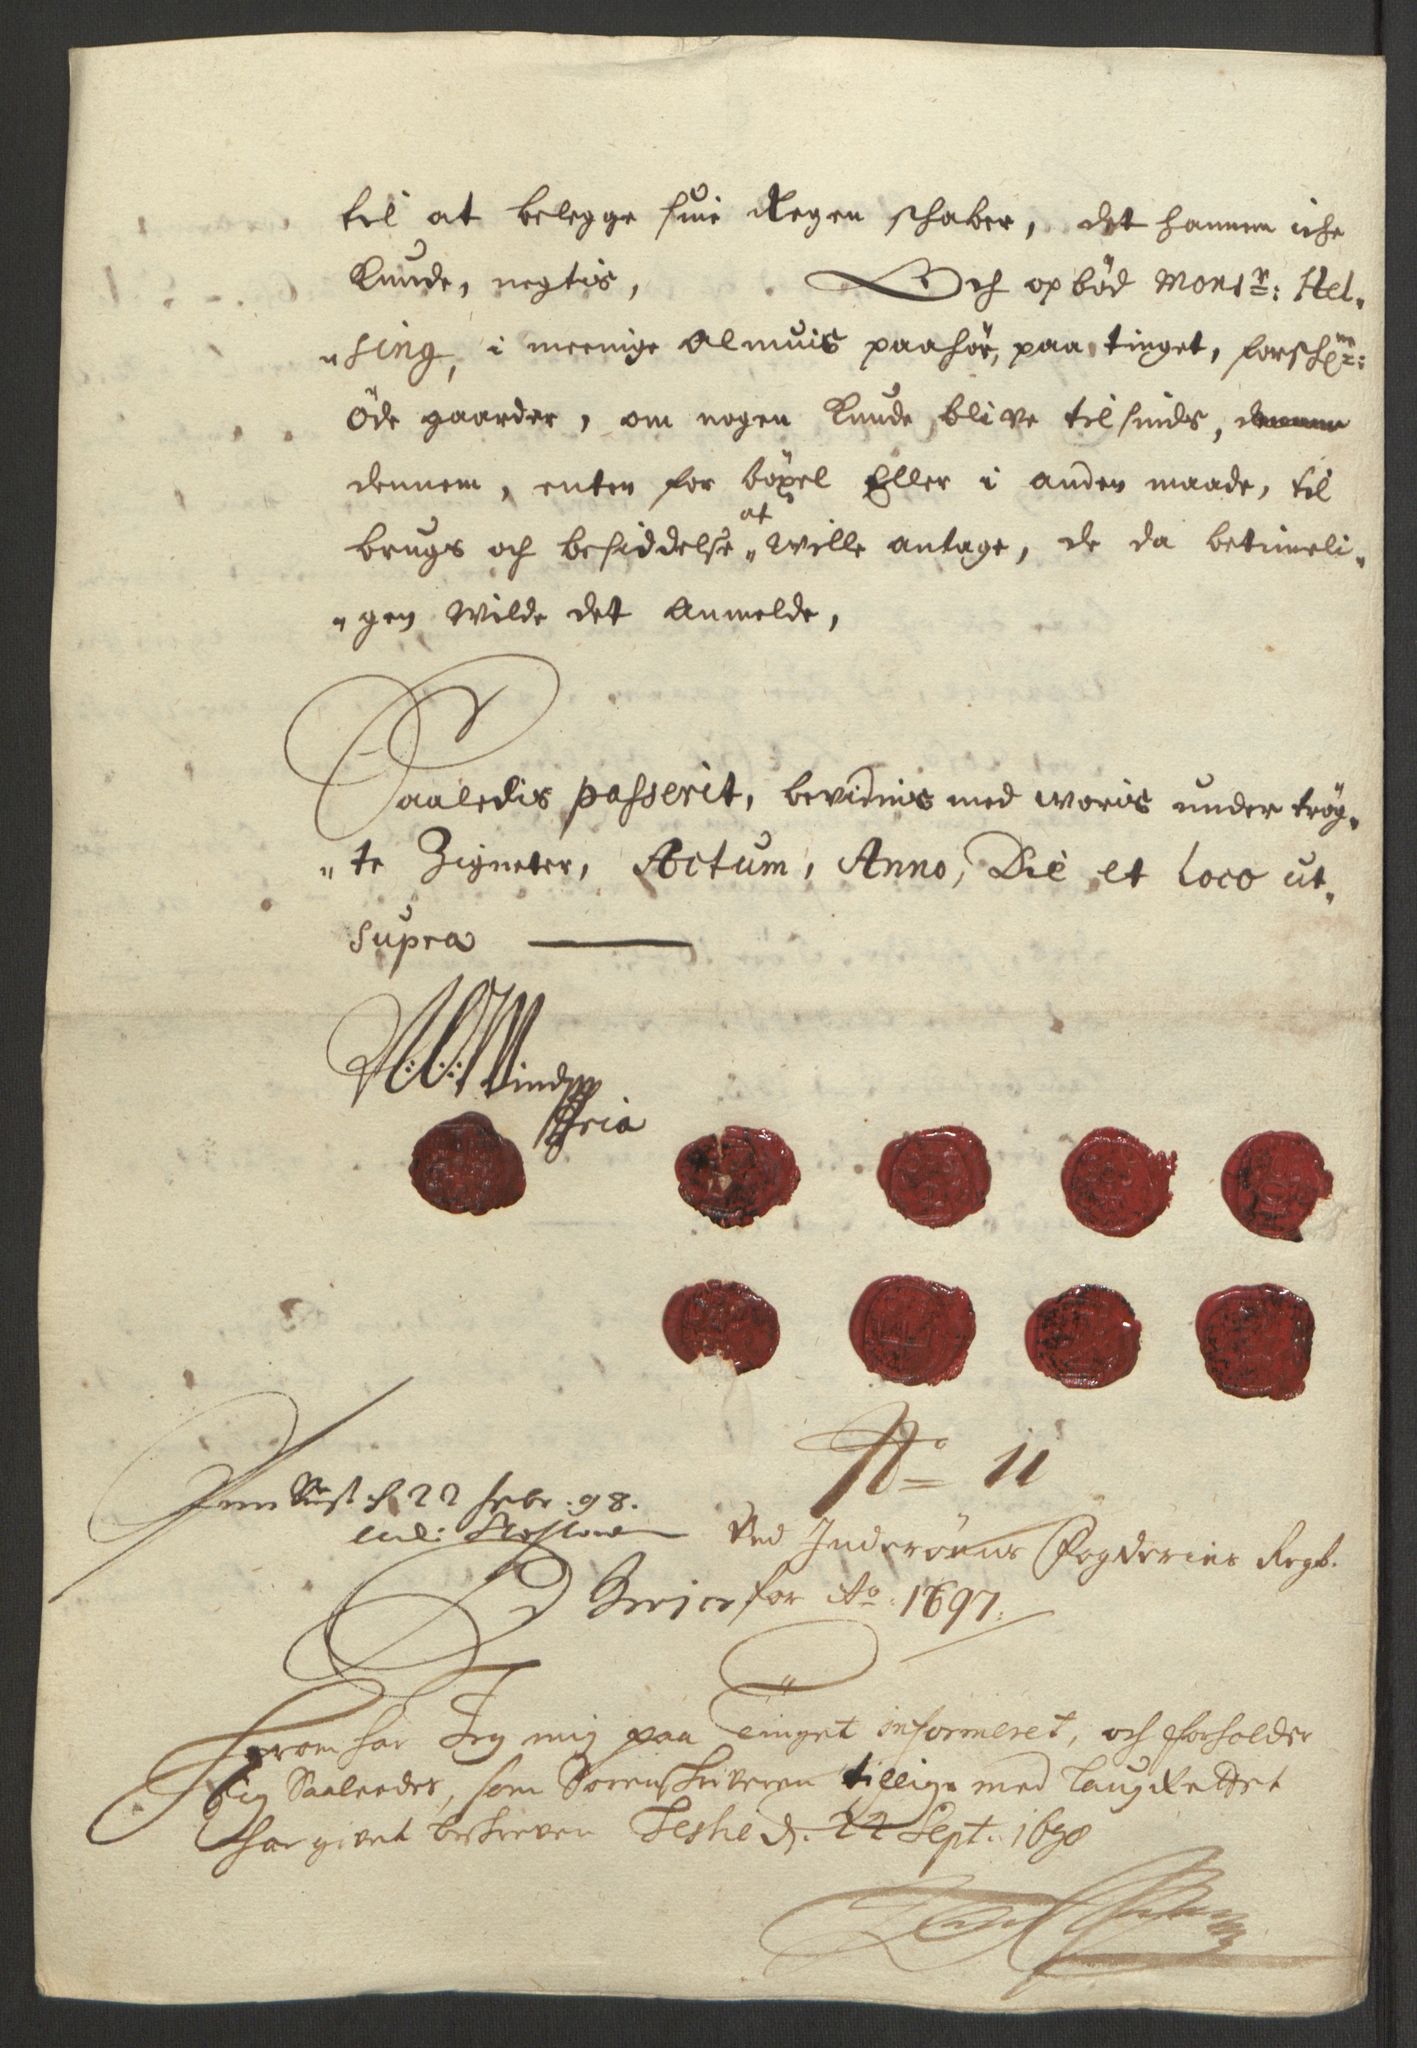 til at belegge sine Regen schaber, det hannem iche
Kunde, negtis, Och opbød Monsr: Hel„
„sing, i meenige Almuis paahør, paa tinget, forschne:
Øde gaarder, om nogen Kunde blive tilsinds,
dennem, enten for bøxel Eller i anden maade, til
brugs och besiddelse at Wille antage, de da betimeli„
„gen Wilde det Anmelde,
Saaledis passerit, bevidnis med woris under trøg„
„te Zigneter, Actum, Anno, Die et Loco ut„
supra
Wind
ppria
No 11
22 Febr: 98.
Ved Inderøens Fogderies Regt.
for Ao: 1697.
Herom har Jeg mig paa Tinget informeret, och forholder
sig Saaleedes, som Sorenskriveren tillige med LaugRettet
har givet beskreven d. 22 Sept. 1698